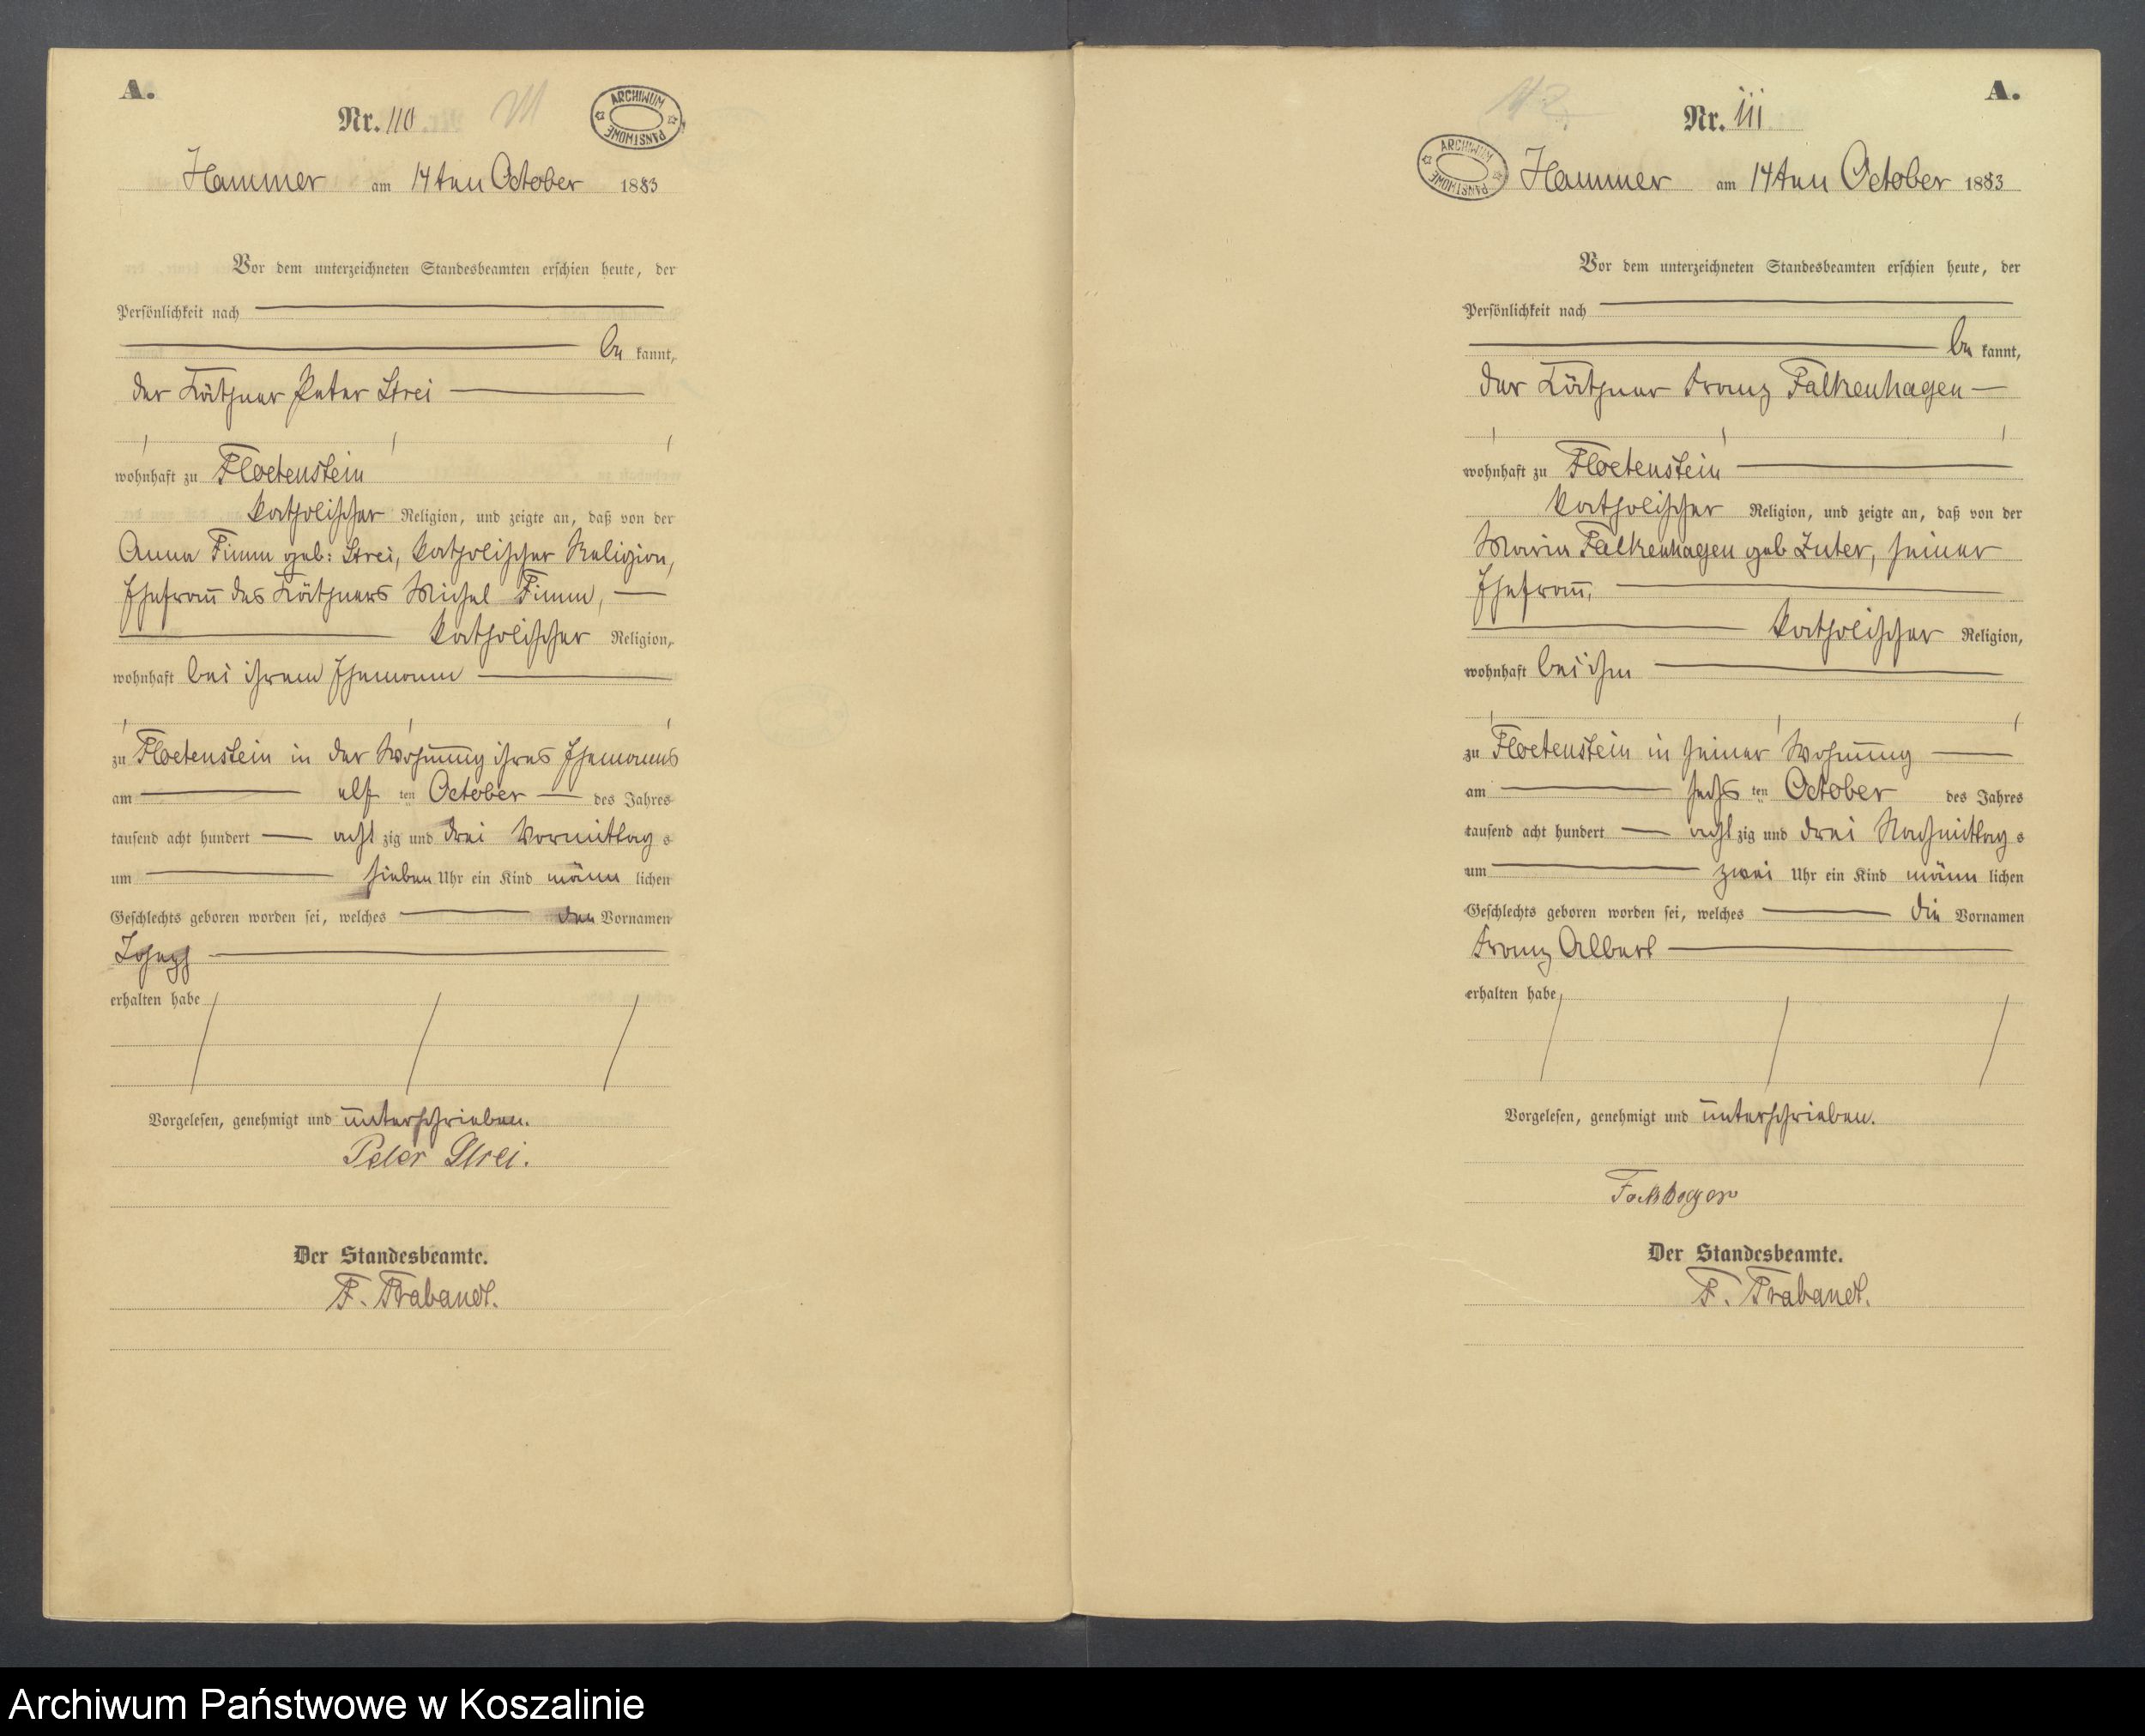 A.
Nr. 110
ARCHIWUM PAŃSTWOWE
Hammer am 14ten October 1883
Vor dem unterzeichneten Standesbeamten erschien heute, der
Persönlichkeit nach
be kannt,
der Käthner Peter Strei
wohnhaft zu Floetenstein
katholischer Religion, und zeigte an, daß von der
Anna Timm geb: Strei, katholischer Religion,
Ehefrau des Käthners Michel Timm,
katholischer Religion,
wohnhaft bei ihrem Ehemann
zu Floetenstein in der Wohnung ihres Ehemanns
am elf ten October des Jahres
tausend acht hundert acht zig und drei Vormittag s
um sieben Uhr ein Kind männ lichen
Geschlechts geboren worden sei, welches den Vornamen
Joseph
erhalten habe
Vorgelesen, genehmigt und unterschrieben.
Peter Strei.
Der Standesbeamte.
F. Trabandt.
A.
Nr. 111
ARCHIWUM PAŃSTWOWE
Hammer am 14ten October 1883
Vor dem unterzeichneten Standesbeamten erschien heute, der
Persönlichkeit nach
be kannt,
der Käthner Franz Falkenhagen
wohnhaft zu Floetenstein
katholischer Religion, und zeigte an, daß von der
Maria Falkenhagen geb , seiner
Ehefrau,
katholischer Religion,
wohnhaft bei ihm
zu Floetenstein in seiner Wohnung
am sechs ten October des Jahres
tausend acht hundert acht zig und drei Nachmittag s
um zwei Uhr ein Kind männ lichen
Geschlechts geboren worden sei, welches die Vornamen
Franz Albert
erhalten habe
Vorgelesen, genehmigt und unterschrieben.
Der Standesbeamte.
F. Trabandt.
Archiwum Państwowe w Koszalinie